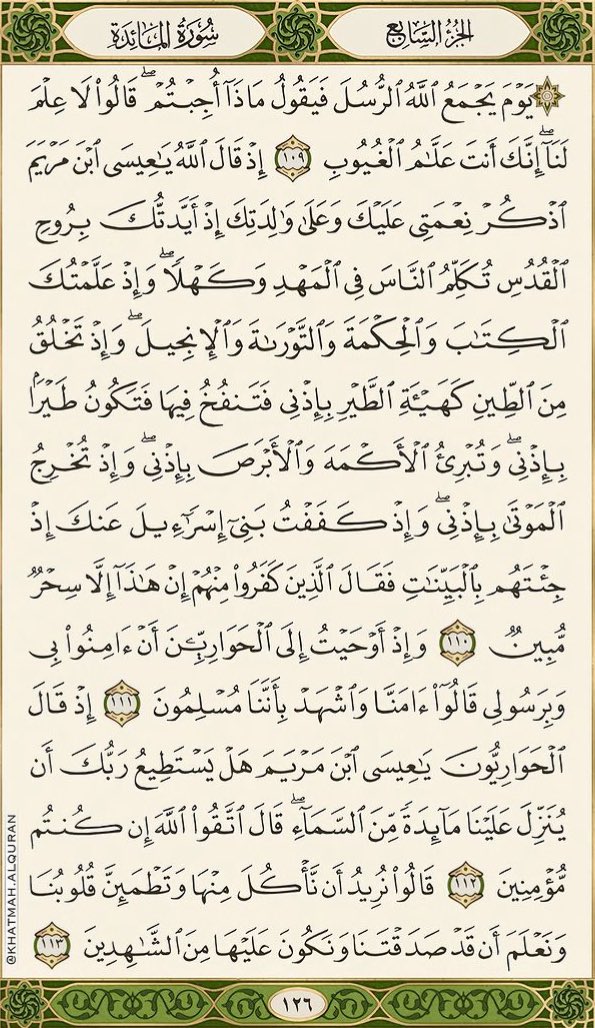 الجزء السابع
سورة المائدة
۞ يَوْمَ يَجْمَعُ ٱللَّهُ ٱلرُّسُلَ فَيَقُولُ مَاذَآ أُجِبْتُمْ ۖ قَالُوا۟ لَا عِلْمَ
لَنَآ ۖ إِنَّكَ أَنتَ عَلَّـٰمُ ٱلْغُيُوبِ ١٠٩ إِذْ قَالَ ٱللَّهُ يَـٰعِيسَى ٱبْنَ مَرْيَمَ
ٱذْكُرْ نِعْمَتِى عَلَيْكَ وَعَلَىٰ وَٰلِدَتِكَ إِذْ أَيَّدتُّكَ بِرُوحِ
ٱلْقُدُسِ تُكَلِّمُ ٱلنَّاسَ فِى ٱلْمَهْدِ وَكَهْلًا ۖ وَإِذْ عَلَّمْتُكَ
ٱلْكِتَـٰبَ وَٱلْحِكْمَةَ وَٱلتَّوْرَىٰةَ وَٱلْإِنجِيلَ ۖ وَإِذْ تَخْلُقُ
مِنَ ٱلطِّينِ كَهَيْـَٔةِ ٱلطَّيْرِ بِإِذْنِى فَتَنفُخُ فِيهَا فَتَكُونُ طَيْرًۢا
بِإِذْنِى ۖ وَتُبْرِئُ ٱلْأَكْمَهَ وَٱلْأَبْرَصَ بِإِذْنِى ۖ وَإِذْ تُخْرِجُ
ٱلْمَوْتَىٰ بِإِذْنِى ۖ وَإِذْ كَفَفْتُ بَنِىٓ إِسْرَٰٓءِيلَ عَنكَ إِذْ
جِئْتَهُم بِٱلْبَيِّنَـٰتِ فَقَالَ ٱلَّذِينَ كَفَرُوا۟ مِنْهُمْ إِنْ هَـٰذَآ إِلَّا سِحْرٌ
مُّبِينٌ ١١٠ وَإِذْ أَوْحَيْتُ إِلَى ٱلْحَوَارِيِّـۧنَ أَنْ ءَامِنُوا۟ بِى
وَبِرَسُولِى قَالُوٓا۟ ءَامَنَّا وَٱشْهَدْ بِأَنَّنَا مُسْلِمُونَ ١١١ إِذْ قَالَ
ٱلْحَوَارِيُّونَ يَـٰعِيسَى ٱبْنَ مَرْيَمَ هَلْ يَسْتَطِيعُ رَبُّكَ أَن
يُنَزِّلَ عَلَيْنَا مَآئِدَةً مِّنَ ٱلسَّمَآءِ ۖ قَالَ ٱتَّقُوا۟ ٱللَّهَ إِن كُنتُم
مُّؤْمِنِينَ ١١٢ قَالُوا۟ نُرِيدُ أَن نَّأْكُلَ مِنْهَا وَتَطْمَئِنَّ قُلُوبُنَا
وَنَعْلَمَ أَن قَدْ صَدَقْتَنَا وَنَكُونَ عَلَيْهَا مِنَ ٱلشَّـٰهِدِينَ ١١٣
١٢٦
@KHATMAH.ALQURAN